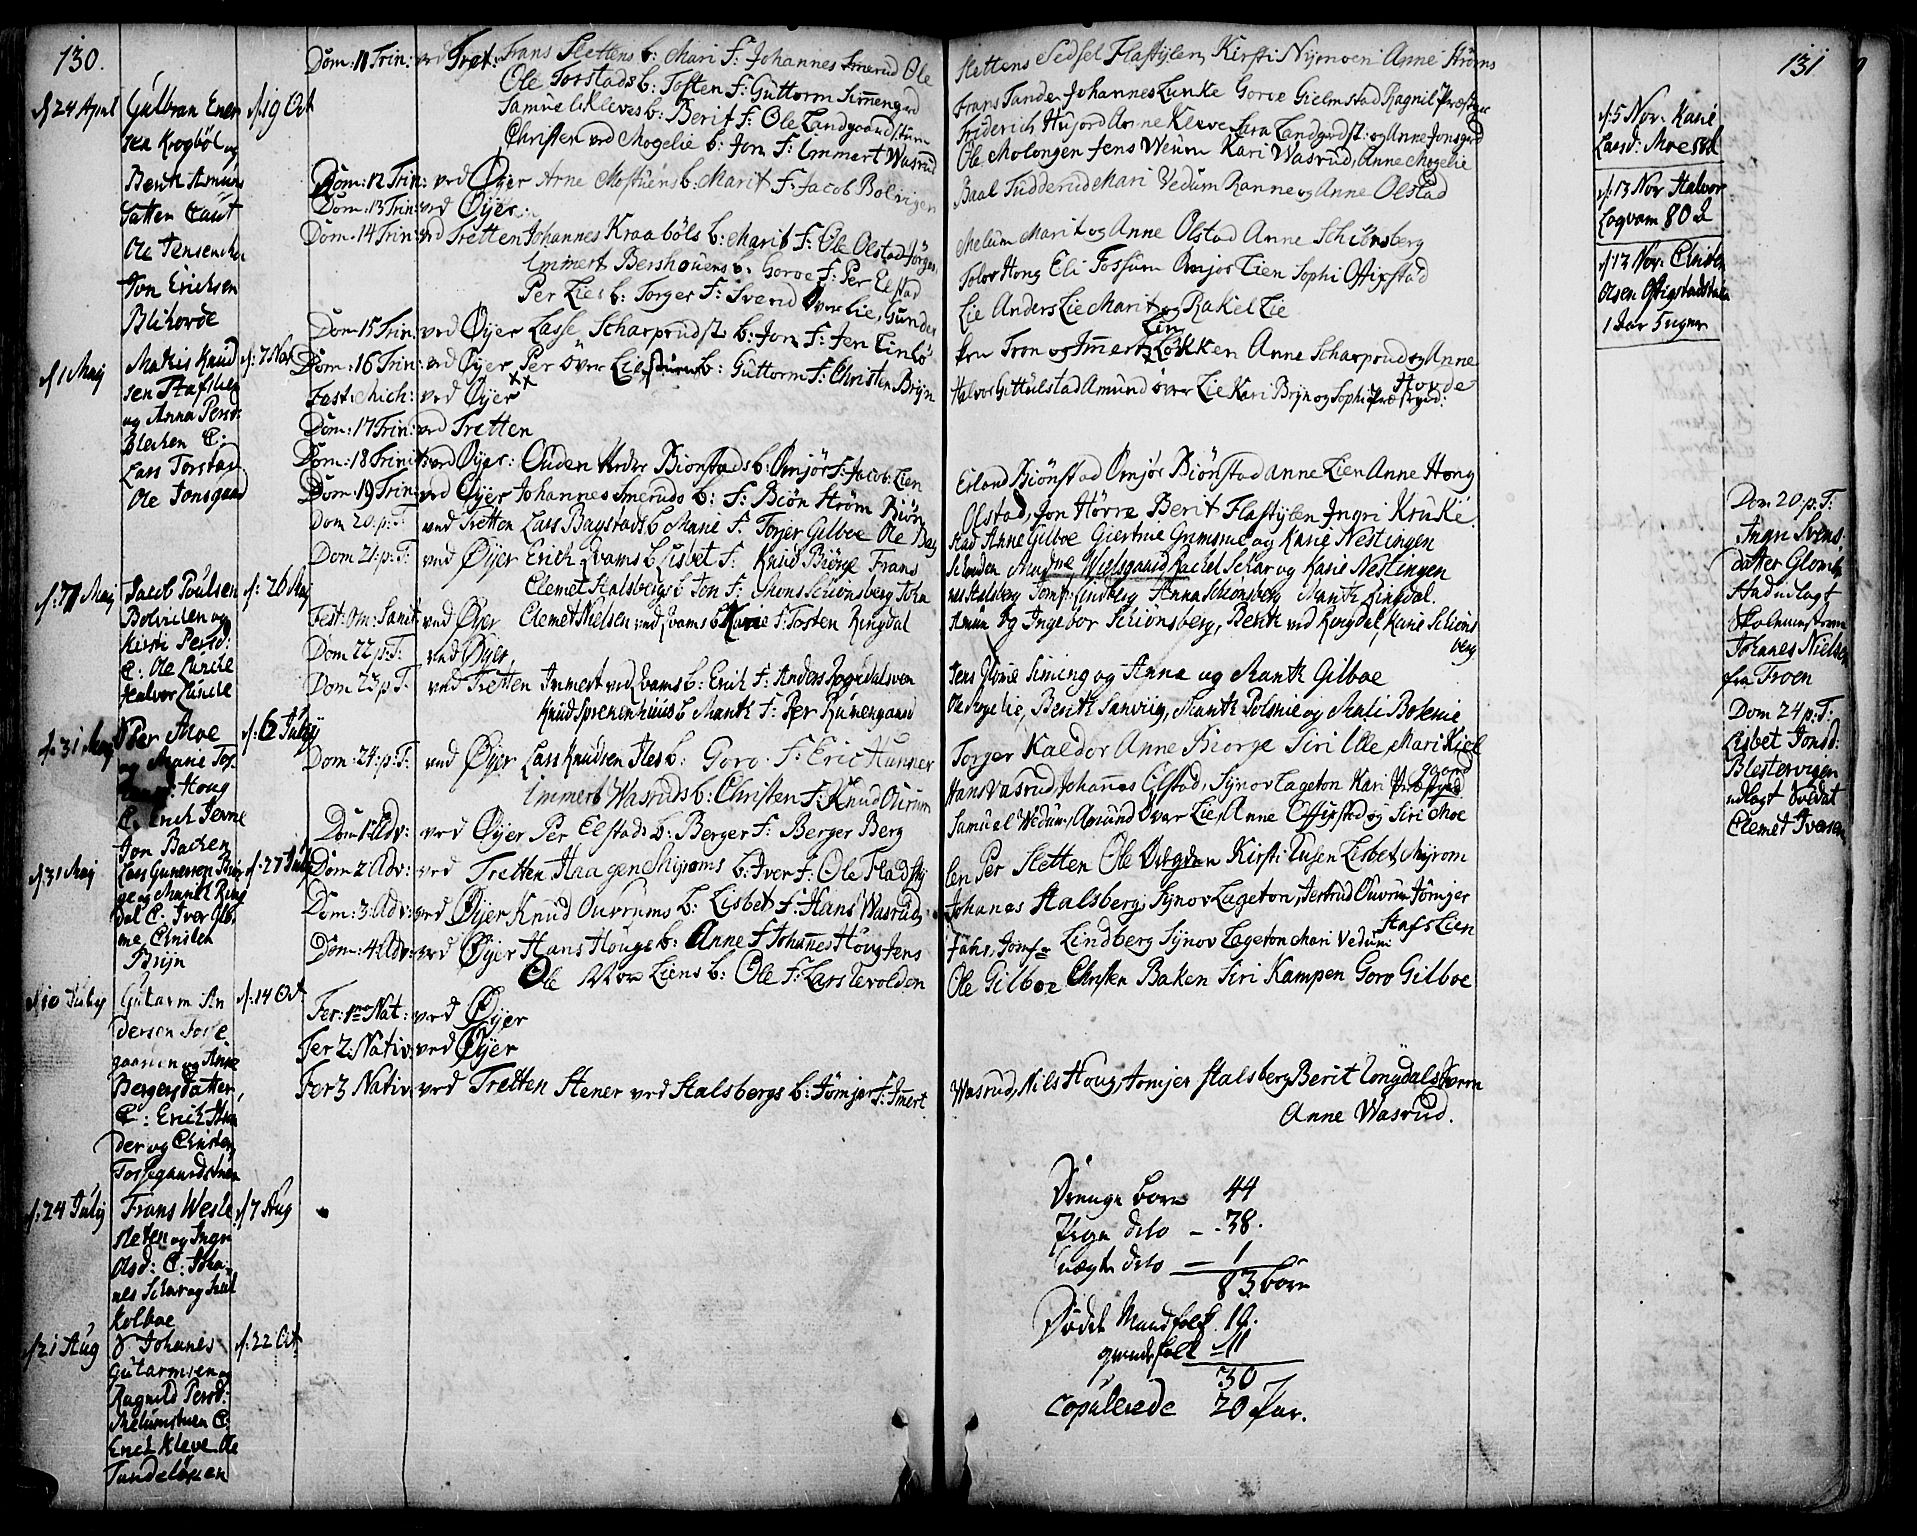 130.
d. 24 April
Gulbran Ener
sen Krogböl og
Berit Asmuns
datter Caut
Ole Jensen
Jon Ericksen
Blihovde
d: 19 Oct
d. 1 Maj
Mathis Knud
sen Stafsberg
og Anna Persd:
Blecken C:
Lars Torstad
Ole Jonsgaard
d: 7 Nov
d: 17 Maj
Jacob Poulsen
Bolvichen og
Kirsti Persd:
C: Ole Lunche
Halvor Lunche
d: 26 Maj
d. 31 Maj
Per Moe
og Marie Tos
Houg
C. Erich Jevne
Jon Backen
d: 6 July
d. 31 Maj
Lars Gundersen Biör
ge og Marit Ring
dal C. Iver
Christen
Brijn
d: 27 July
d. 10 July
Gutarm An
dersen Tofte
gaarden og Anne
Bergersdatter,
C: Erich
der og Christen
Toftegaardstuen
d. 14 Oct
d: 24 July
Frans Wesle
sleten og Ingri
Olsd: C. Joha-
nes
Kolboe
d 7 Aug
d 21 Aug
Johanes
Gutarmsen og
Ragnild Persd:
Melumstuen C:
Erich Kleve Ole
Tandelöcken
d. 22 Oct
Dom: 11 Trin: ved Tret: Frans Slettens b: Mari F: Johannes Smerud Ole
Ole Torstads b: Tosten F: Guttorm Simengrd
Samuel Kleves b: Berit F: Ole Landgaardstuen
Christen ved Mogelie b: Jon F: Emmert Wasrud
Dom: 12 Trin: ved Öyer Arne Mostuens b: Marit F: Jacob Bolvigen
Dom: 13 Trin: ved Öyer:
Dom: 14 Trin: ved Tretten Johannes Kraaböls b: Marit F: Ole Olstad Jörgen
Emmert Bershouens b: Goroe F: Per Elstad
Per Lies b: Torger F: Svend Över Lie, Gunder
Dom 15 Trin: ved Öyer Lasse Scharprudst b: Jon F: Jen Linlö
Dom: 16 Trin: ved Öyer Per över Liestuens b: Guttorm F: Christen Brijn
Fest: Mich: ved Öyer
Dom: 17 Trin: ved Tretten
Dom: 18 Trinit: ved Öyer: Ouden Nedre Bionstads b: Omjör F: Jacob Lien
Dom: 19 Trin: ved Öyer Johannes Smeruds b: F: Biön Ström Biön
Dom 20: p: T: ved Tretten Lars Baystads b Marie F. Torjer Gilboe Ole Bay
Dom 21: p: T: ved Öyer Erich Qvams b Lisbet F: Knud Biörge Frans
Clemet Stalsbergs b Jon F: Mons Schiönsberg John
Fest: Om: Sanct: ved Öyer Clemet Nielsen ved Qvams b Karie F. Torsten Ringdal
Dom 22 p: T: ved Öyer
Dom 23 p T: ved Tretten Immert ved Qvams b: Erich F: Anders Rogndalsven
Knud Sprenenhuus b Marit F: Per Runengaard
Dom: 24: p: T: ved Öyer Lars Knudsen b: Goro F: Eric Hunner
Emmert Wasruds b: Christen F: Knud Ourum
Dom 1 Adv: ved Öyer Per Elstads b: Berger F: Berger Berg
Dom: 2 Adv: ved Tretten Haagen Myroms b: Iver F: Ole Fladsty
Dom: 3: Adv: ved Öyer Knud Ouvrums b: Lisbet F: Hans Wasrud,
Dom: 4 Adv: ved Öyer Hans Hougs b: Anne F Johannes Houg Jens
Ole Liens b: Ole F: Lars Tevolden
Fer: 1me Nat: ved Öyer
Fer 2: Nativ: ved Öyer
Fer 3 Nativ: ved Tretten Stener ved Stalsbergs b: Jömjer F: Imert
131
Slettens Sedsel Flastylen Kirsti Nijmoen Anne Ströms
Frans Tande Johannes Lunke Goroe Gielmstad Ragnil Præstgrd
Friderich Hujord Anne Kleve Sara Landgrdst: og Anne Jonsgrd
Ole Molongen Jens Weum Kari Wasrud, Anne Mogelie
Baal Tudderud Mari Vedum Ranne og Anne Olstad
Melum Marit og Anne Olstad Anne Schiönsberg
Tolov Hong Eli Fossum Omjor Lien Sophi Offigstad
Lie Anders Lie Marit og Rakel Lie
Lin
Tron og Immert Lökken Anne Scharprud og Anne
Hovde
Halvor Gittulstad Amund över Lie Kari Brijn og Sophi Præstgrd:
Erland Biönstad Omjör Biönstad Anne Lien Anne Hong
Olstad, Jon Hörre Berit Flastylen Ingri Kruke
stad Anne Gilboe Giertrue Grimsrue og Karie Nestingen
Slenden Madme Wielsgaard Rachel Schar og Karie Nestingen
nes Stalsberg Jomf: Lindberg Anna Schiönsberg Marit Ringdal.
Amun Og Ingebor Schiönsberg, Berit ved Ringdal, Karie Schiöns
berg
Jens Glomie Siming og Anne og Marit Gilboe
Ole Mogelie, Berit Sanviig, Marit Polonie og Mali Bolenie
Torger Kaldor Anne Biorge Siri Lie Mari Kiel
gaard
Hans Vasrud, Johannes Elstad, Synov Lageton Kari Præstgrd
Samuel Wedum, Amund Över Lie, Anne Offigstad og Siri Moe
len Per Sletten Ole Kirsti Lisbet Myrom
Johanes Stalsberg, Synov Lageton, Jertrud Ouvrum Jömjer
Stafs Lien
Jahr, Jomfr Lindberg Synov Lageton Mari Vedum
Ole Gilboe Christen Baken Siri Kampen Goro Gilboe
Wasrud, Nils Houg, Jomjer Stalsberg Berit Longdalstuen
Anne Wasrud.
Drenge born 44
Pige dito — 38.
uægte dito — 1
83 börn
Dödde Mandfolk 19.
qvindfolk 11
30
copulerede 20 Par.
d: 5 Nov. Karie
Larsd: Moe
d: 13 Nov Halvor
Logvam 80
d 13 Nov. Christen
Olsen Ofigstadstuen
1 Aar 5 ugner
Dom 20: p: T:
Ingri Svens
datter Glomen
stad udlagt
Skolemesteren
Johanes Nielsen
fra Troen
Dom 24 p: T:
Lisbet Jonsd:
Blestervigen
udlagt Soldat
Clemet Iversen